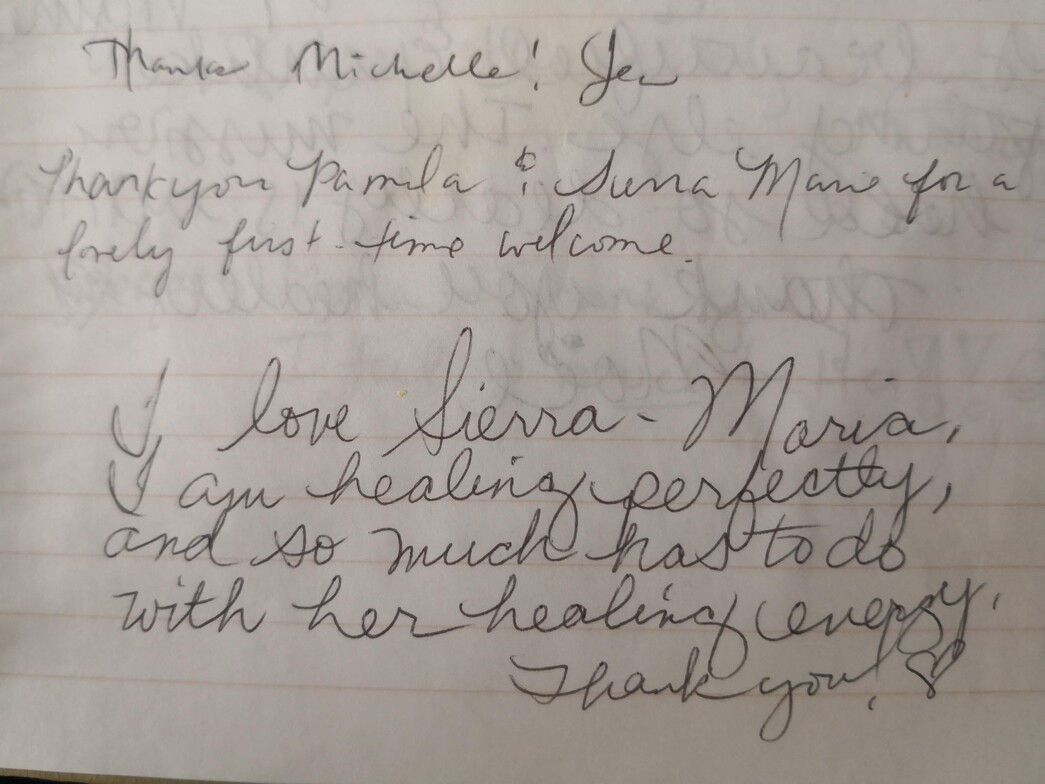 Thanks Michelle! Jen
Thank you Pamela & Sierra Maria for a
lovely first-time welcome.
I love Sierra-Maria,
I am healing perfectly,
and so much has to do
with her healing energy.
Thank you! ♡